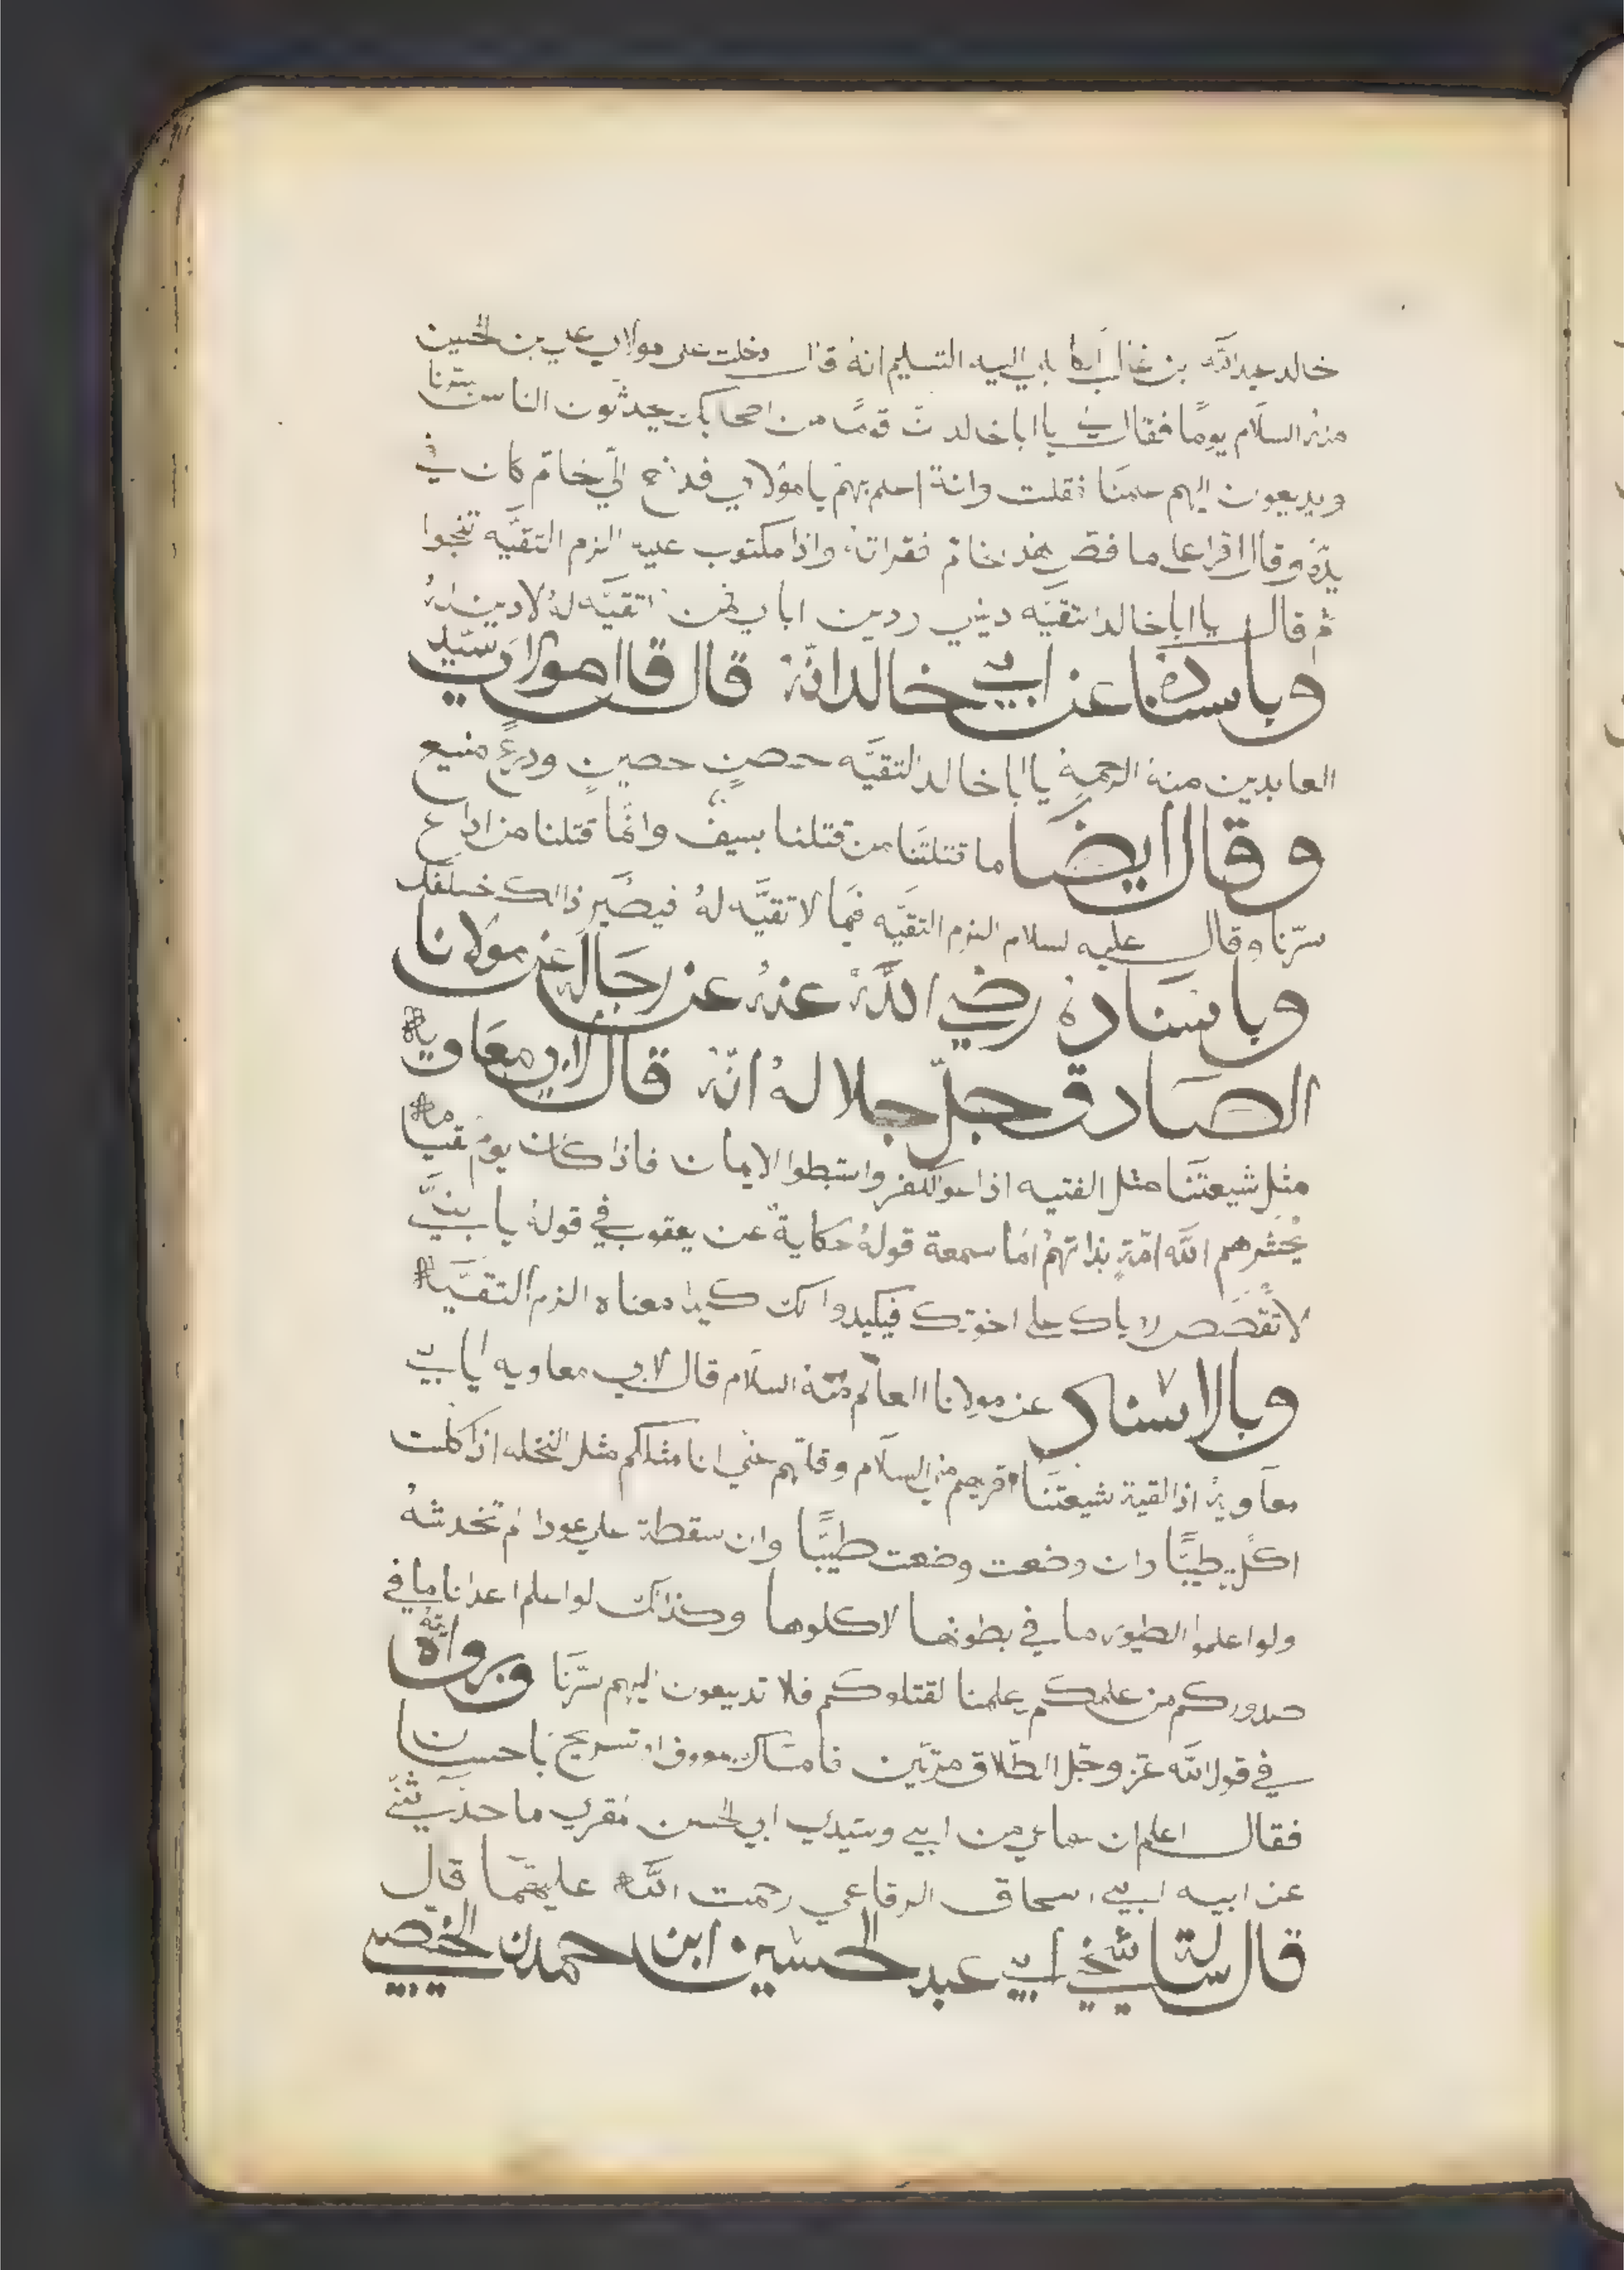 خالد عبدالله بن غالب الكابلي اليه التسليم انهُ قال دخلت على مولاي علي بن الحسين
منهُ السلام يومًا فقال لي يا ابا خالد ان قومًا من اصحابك يحدثون الناس بسّرنا
ويديعون اليهم علمنا فقلت وانة اعلم بهم يا مولاي فدفع الّي خاتم كان في
يدهُ وقال اقرا على ما فص هذ الخاتم فقراتهُ واذا مكتوب عليه الزم التقيَّه تنجوا
ثم قال يا ابا خالد التقيَّه ديني ودين ابايي فمن لا تقيَّه لهُ لا دين لهُ
وباسنادهُ عن ابي خالد انّهُ قال قال مولاي سيّد
العابدين منهُ الرحمة يا ابا خالد التقيَّه حصنٍ حصينٍ ودرعٍ منيع
وقال ايضًا ما قتلنا من قتلنا بسيفٌ وانمَّا قتلنا من اداع
سرّنا وقال عليه لسلام الزم التقيَّه فيما لا تقيَّه لهُ فيصُير ذالك خلفك
وباسنادهُ رضي اللّهُ عنهُ عن رجاله عن مولانا
الصادق جلّ جلالهُ انّهُ قال لابي معاويه
مثل شيعتنَا مثل الفتيه اذا عوا الكفر واستبطوا الايمان فاذا كان يوم قيامه
يُحشرهم اللّه امّةٍ بذاتهمُ امَا سمعة قولهُ حكايةً عن يعقوب في قولهُ يا بنيَّ
لا تُقصَص روياك على اخوتك فيكيدوا لك كيدا معناه الزم التقيَّه
وبالاسناد عن مولانا العالم منهُ السلام قال لابي معاويه يا ابي
معاويهُ اذا لقية شيعتنَا اقريهم مني السلام وقل لهم عني انا مثلكم مثل النخله اذا كلت
اكل طيبًّا وان وضعت وضعت طيبًّا وان سقطة على عود لم تخدشهُ
ولوا علموا الطيور ما في بطونها لاكلوها وكذالك لوا علم اعدانا ما في
صدوركم من علمكم بعلمنا لقتلوكم فلا تديعون اليهم سرّنا وبرواتهُ
في قول اللّه عّز وجّل الطّلاق مرتّين فامسَاك بمعروف او تسريح باحسان
فقال اعلم ان سماعي من ابي وسّيدي ابي الحسن مقري ما حدّثني
عن ابيه ابي اسحاق الرقاعي رحمت اللّه عليهما قال
قال سالة شيخي ابي عبد الحسين ابن احمدن الخصيبي